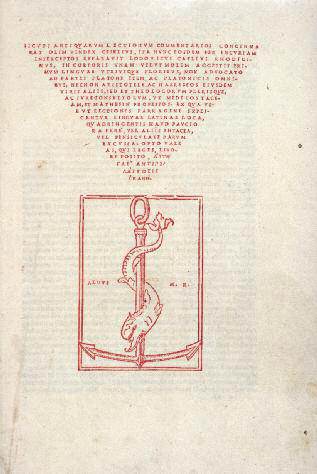 SICVTI ANTIQVARVM LECTIONVM COMMENTARIOS CONCINNA
RAT OLIM VINDEX CESELIVS, ITA NVNC EOSDEM PER INCVRIAM
INTERCEPTOS REPARAVIT LODOVICVS CAELIVS RHODIGI-
NVS, IN CORPORIS VNAM VELVT MOLEM AGGESTIS PRI-
MVM LINGVAE VTRIVSQVE FLORIBVS, MOX ADVOCATO
AD PARTES PLATONE ITEM, AC PLATONICIS OMNI-
BVS, NECNON ARISTOTELE, AC HAERESEOS EIVSDEM
VIRIS ALIIS, SED ET THEOLOGORVM PLERISQVE,
AC IVRECONSVLTORVM, VT MEDICOS TACE-
AM, ET MATHESIN PROFESSOS. EX QVA VE-
LVT LECTIONIS FARRAGINE EXPLI-
CANTVR LINGVAE LATINAE LOCA,
QVADRINGENTIS HAVD PAVCIO
RA FERE, VEL ALIIS INTACTA,
VEL PENSICVLATE PARVM
EXCVSSA. OPTO VALE
AS, QVI LEGES, LIVO-
RE POSITO
ALDVS
M. R.